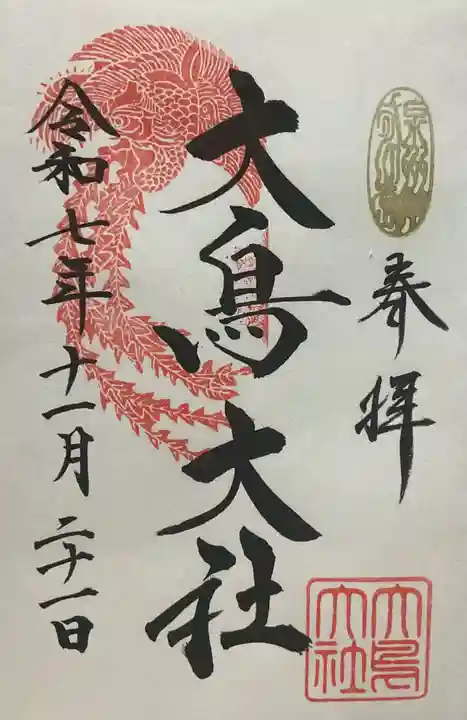 奉拝
大鳥大社
令和七年十一月二十一日
大鳥大社